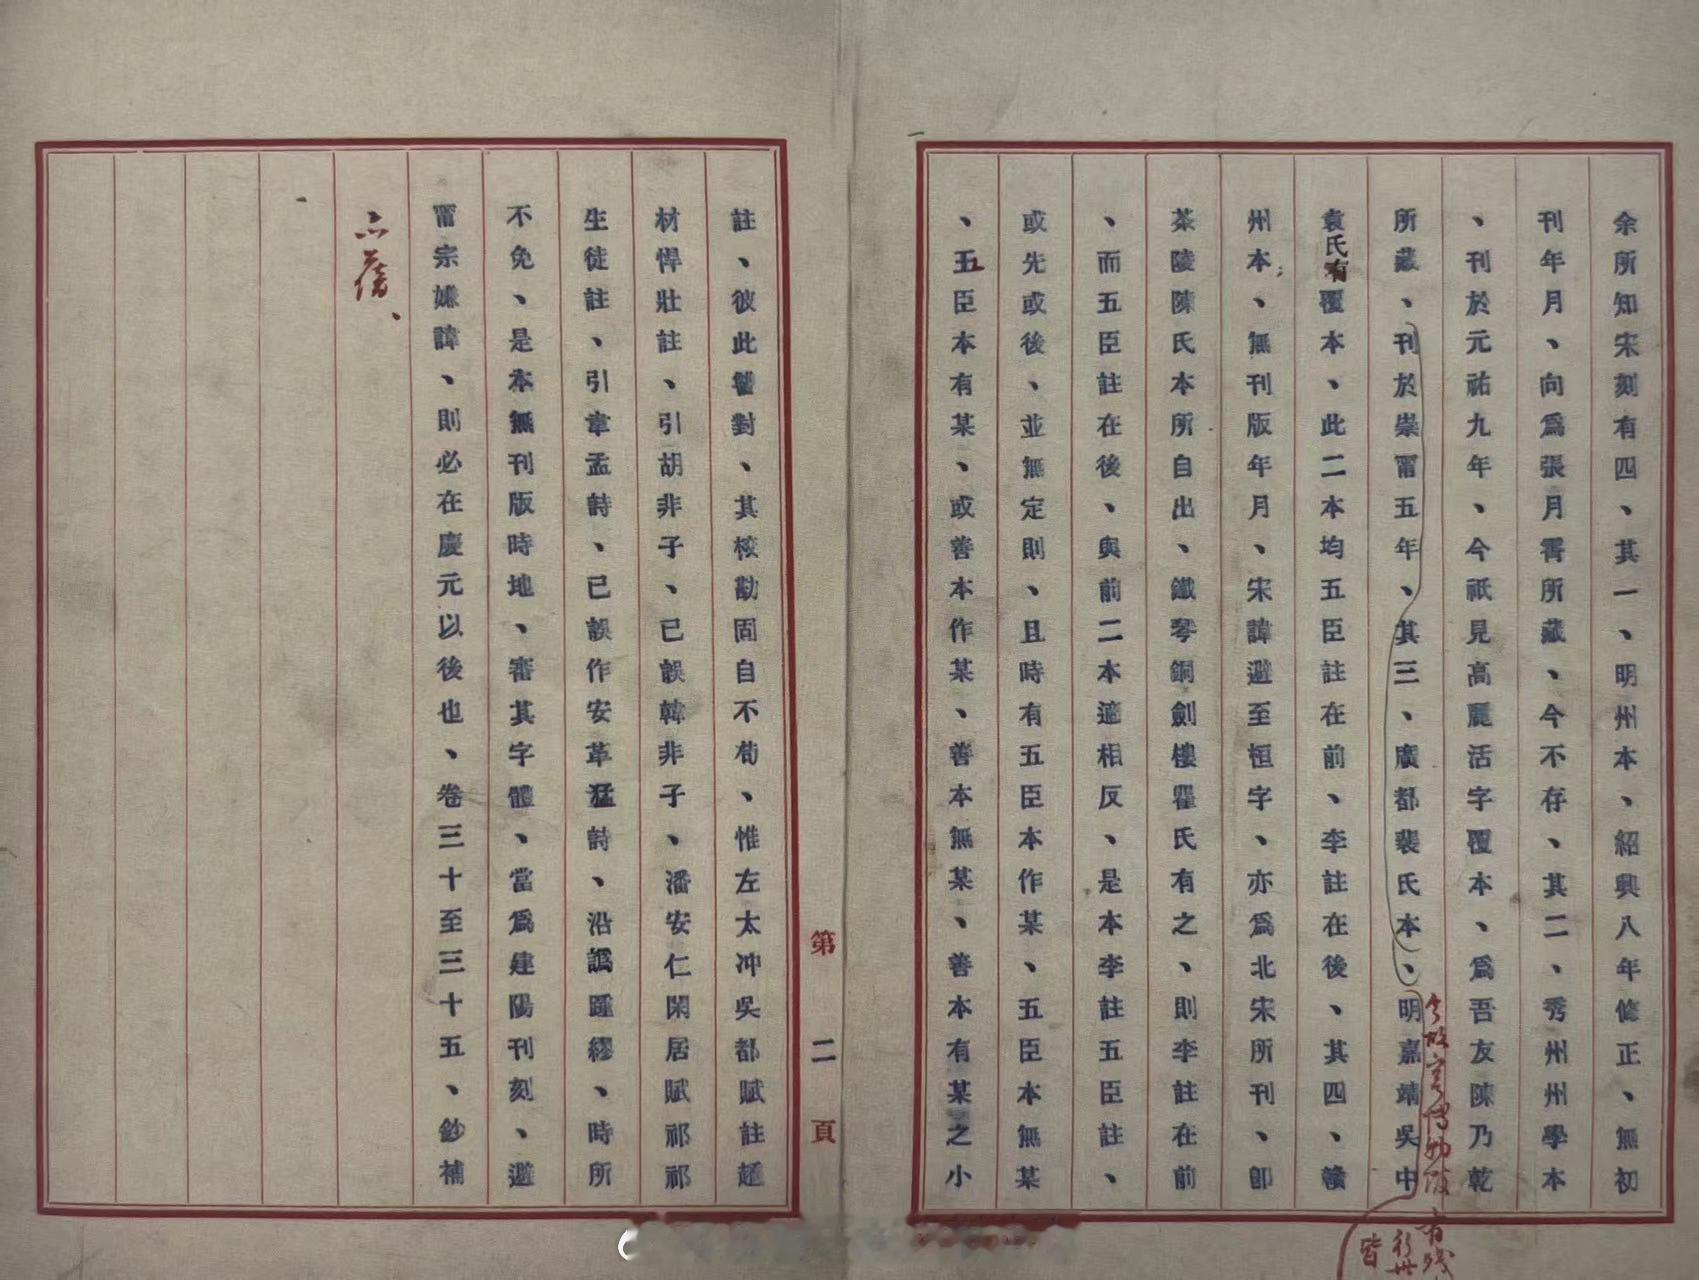 余所知宋刻有四、其一、明州本、紹興八年修正、無初
刊年月、向爲張月霄所藏、今不存、其二、秀州州學本
、刊於元祐九年、今祇見高麗活字覆本、爲吾友陳乃乾
所藏、刊於崇甯五年、其三、廣都裴氏本、明嘉靖吳中
今故宮博物院有殘
皆
袁氏有覆本、此二本均五臣註在前、李註在後、其四、贛
州本、無刊版年月、宋諱避至桓字、亦爲北宋所刊、卽
茶陵陳氏本所自出、鐵琴銅劍樓瞿氏有之、則李註在前
、而五臣註在後、與前二本適相反、是本李註五臣註、
或先或後、並無定則、且時有五臣本作某、五臣本無某
、五臣本有某、或善本作某、善本無某、善本有某之小
第二頁
註、彼此讐對、其檢勘固自不苟、惟左太冲吳都賦註趙
材悍壯註、引胡非子、已誤韓非子、潘安仁閑居賦祁祁
生徒註、引韋孟詩、已誤作安革猛詩、沿譌踵繆、時所
不免、是本無刊版時地、審其字體、當爲建陽刊刻、避
甯宗嫌諱、則必在慶元以後也、卷三十至三十五、鈔補
亦舊、